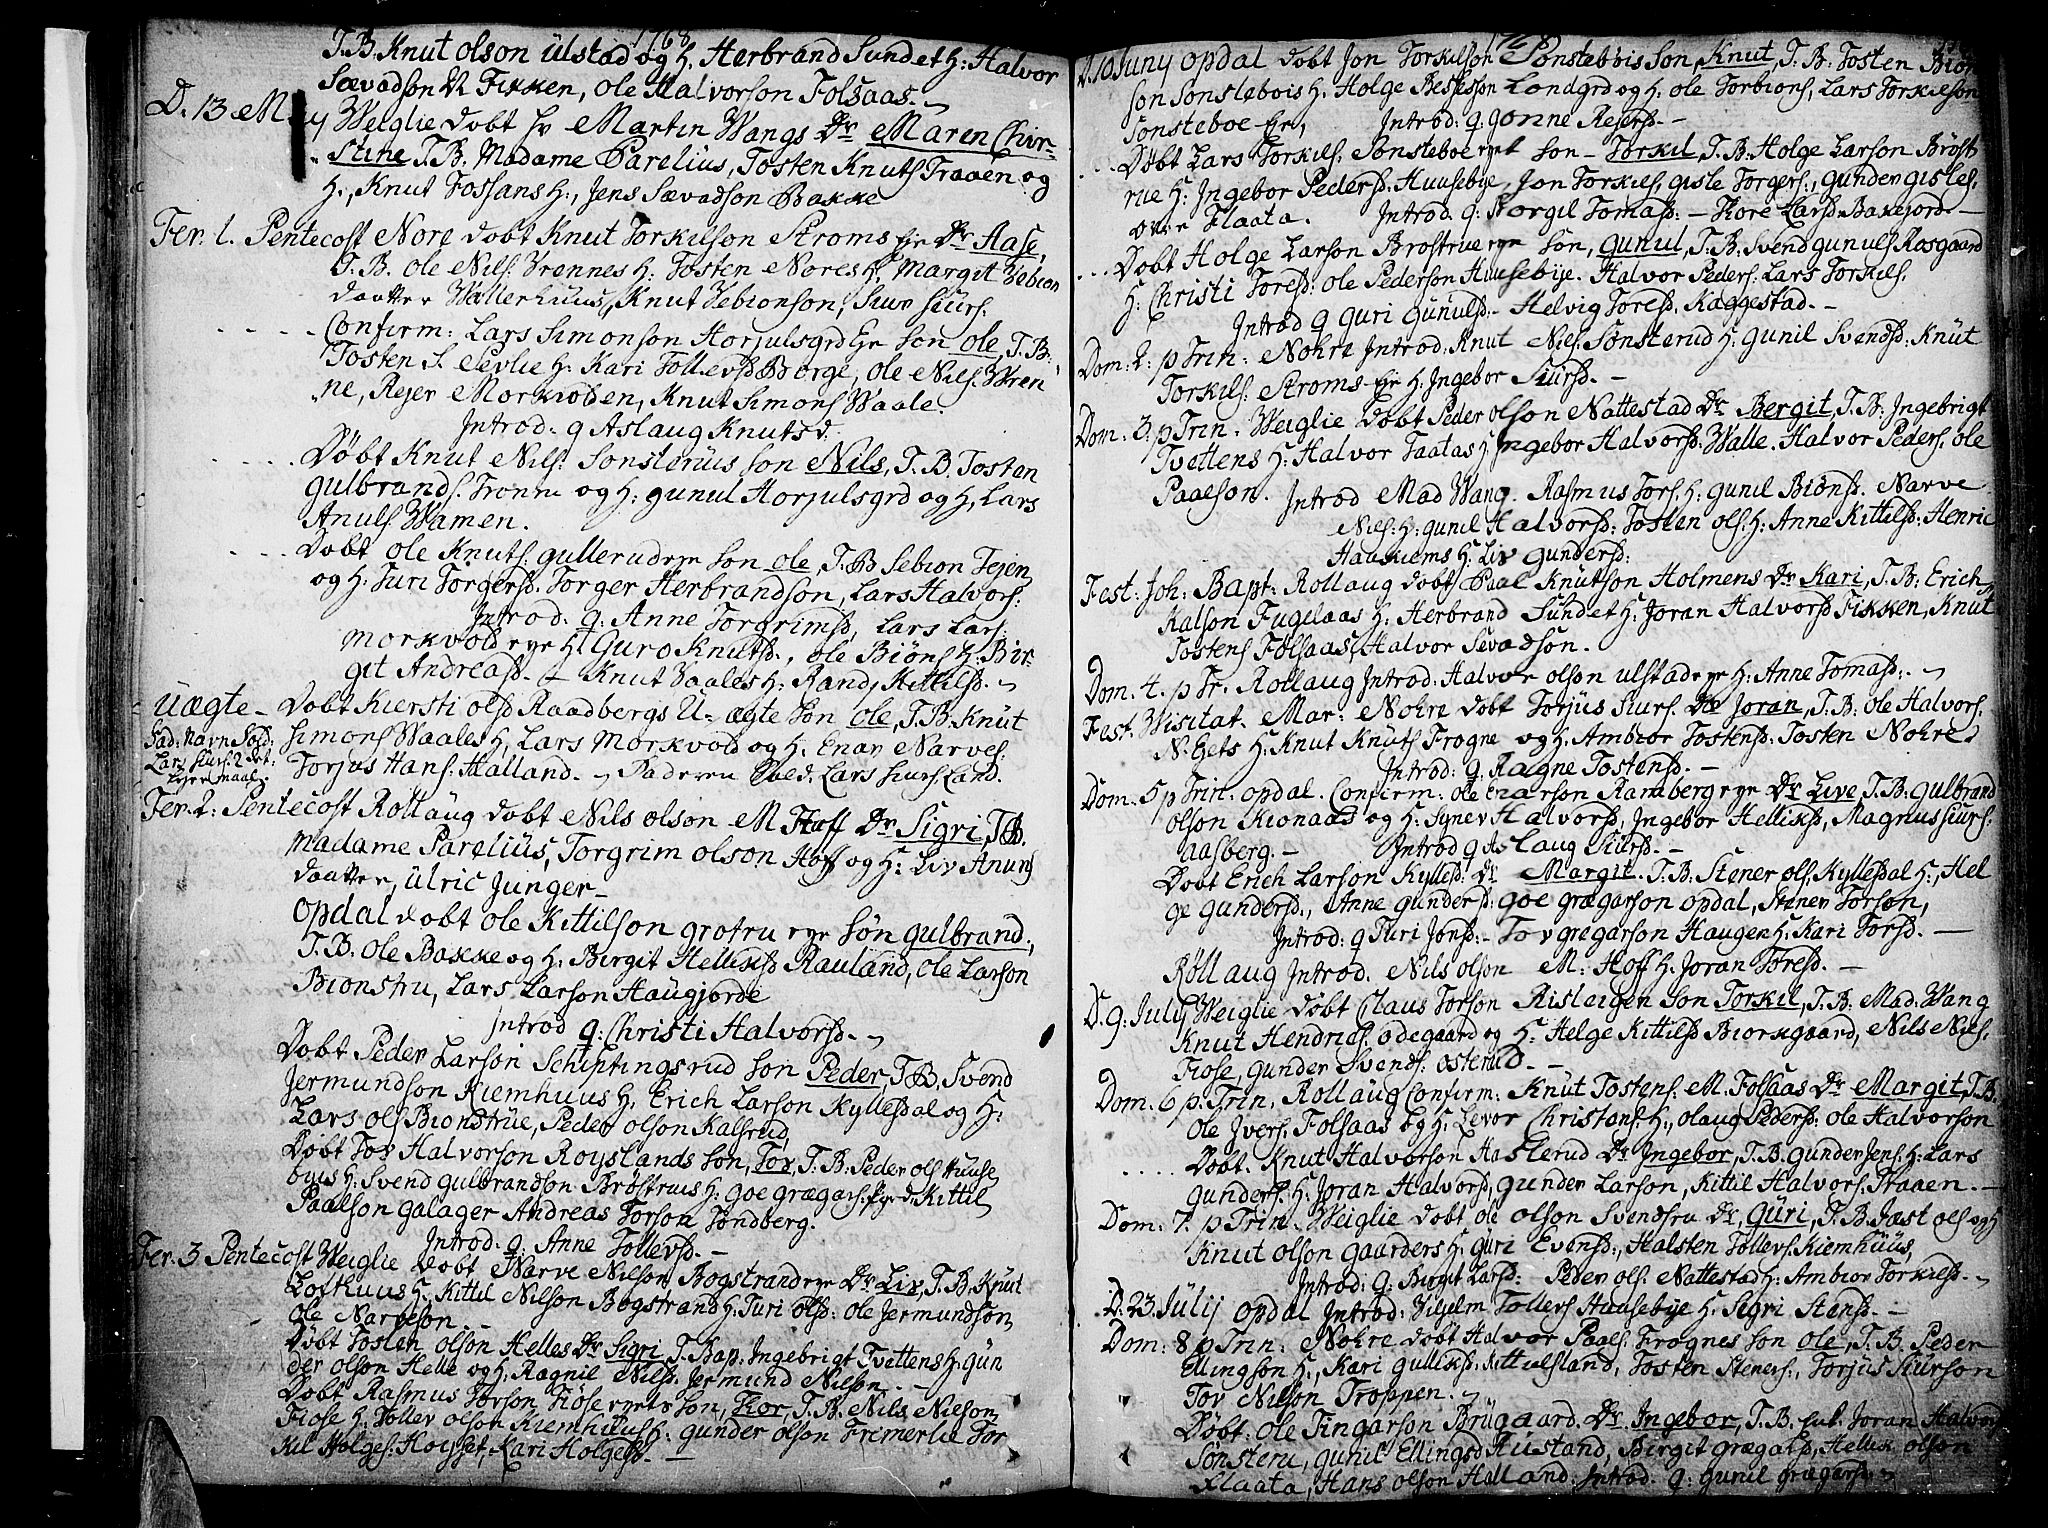 1768
T.B. Knut olson ulstad og H. Herbrand Sundet H: Halvor
Sævadson N Fikken, Ole Halvorson Folsaas.
D. 13 May Weiglie Døbt Hr Martin Wangs Dr Maren Chir-
stine T.B. Madame Parelius, Tosten Knuts Traaen og
H., Knut Fossans H., Jens Sævadson Bakke
Fer. 1. Pentecost Nore døbt Knut Torkilson Stroms Eje Dr Aase,
T.B. ole Nils: Vrennes H: Tosten Nores H, Margit Vebion
daatter Wallerhuus, Knut Vebionson, Siur Siurs.
Confirm: Lars Simonson Horjulsgrd Eje Son ole, T.B:
Tosten S. Sevlie H: Kari Tollevsd Borge, ole Nils: Wren
ne, Rejer Morkvolden, Knut Simons Waale.
Introd: q Aslaug Knutsd.
Døbt Knut Nils: Sønsteruus son Nils, T.B. Tosten
gulbrands. Tronne og H: gunul Horjulsgrd og H, Lars
Anuls Wamen.
Døbt ole Knuts. gullerud eye son ole, T.B Sebion Tejen
og H: Turi Torgersd. Torger Herbrandson, Lars Halvors:
Introd: q: Anne Torgrimsd, Lars Lars:
morkvold eye H: Guro Knutsd., ole Biøns H: Bir-
git Andreasd. Knut Vaales H: Randi Kittilsd.
Uægte - Døbt Kiersti olsd Raadbergs U-ægte son ole, T.B. Knut
Simons Waales H, Lars Morkvold og H. Enar Narves.
Torjus Hans: Halland. Faderen Sold: Lars Siurs Land.
Fad: Navn Sold:
Lars Siurs: 2 det
Lejermaal.
Fer. 2: Pentecost Rollaug døbt Nils olson M Hoff Dr Sigri, T.B.
Madame Parelius, Torgrim olson Hoff og H: Liv Anuns
daatter, Ulric Junger
opdal døbt ole Kittilson grotru eye søn gulbrand,
T.B. ole Bakke og H: Birgit Helliksd Rauland, ole Larson
Bionstru, Lars Larson Haugjorde
Introd q: Christi Halvorsd.
Døbt Peder Larson Schiptingsrud son Peder, T.B. Svend
Jermundson Kiemhuus H, Erich Larson Kyllesdal og H:
Lars ols Bionstrue, Peder olson Kalsrud,
Døbt Tor Halvorson Røyslands son, Tor, T.B: Peder ols Huuse
byes H: Svend gulbrandson Brøstrues H: goe grægars: Kittil
Paalson galager Andreas Torson Tondberg.
Introd. q. Anne Tollevsd.
Fer. 3 Pentecost Weiglie Døbt Narve Nilson Bogstrand eye Dr Liv, T.B. Knut
Lofthuus H, Kittil Nilson Bogstrand H. Turi olsd: ole Jermundson,
ole Narveson.
Døbt Tosten olson Helles Dr Sigri T. Bap: Ingebrigt Tvettens H: gun
der olson Helle og H: Ragnil Nilsd. Jermund Nilson.
Døbt Rasmus Torson Fiøse eyets son, Tor, T.B. Nils Nilson
Fiose H: Tollev olson Kiemhuus H: gunder olson Fremerlie Tor
kil Holges: Høysset, Kari Holgesd.
1768
D. 10 Juny opdal døbt Jon Torkilson Sønstebøis son, Knut, T.B: Tosten Biøn
son Sønstebois H: Holge Besseson Londgrd og H: ole Torbions, Lars Torkilson
Sønsteboe Eje, Introd: q. gonne Rejersd.
Døbt Lars Torkils. Sonsteboe eye t son - Torkil, T.B: Holge Larson Brøst
rue H: Ingebor Pedersd: Huusebye, Jon Torkils, gisle Torgers:, gunder gisles.
over Flaata. Introd: q: Norgil Tomasd: - Tore Larsd. Bakejord.
Døbt Holge Larson Brostrue eye son, gunul, T.B. Svend gunuls Rosgaard
H: Christi Toresd: ole Pederson Huusebye. Halvor Peders: Lars Torkils.
Introd q guri gunulsd. - Helvig Toresd. Kaggestad.
Dom: 2: p Trin: Nohre Introd: Knut Niels. Sønsterud H: gunil Svendsd: Knut
Torkils: Stroms-Eje H: Ingebor Siursd.
Dom: 3. p Trin: Weiglie døbt Peder olson Nattestad Dr Bergit, T.B: Ingebrigt
Tvettens H: Halvor Taatas H: Ingebor Halvorsd: Walle. Halvor Peders. ole
Paalson. Introd Mad Wang. Rasmus Tors. H: gunil Biønsd. Narve
Niels: H: gunil Halvorsd: Tosten ols: H: Anne Kittilsd: Henric
Haakiems H: Liv gundersd:
Fest: Joh: Bapt: Rollaug døbt Paal Knutson Holmens Dr Kari, T.B: Erich
Kalson Fugelaas H: Herbrand Sundet H: Joran Halvorsd Fikken, Knut
Tostens Følsaas, Halvor Sevadson.
Dom: 4. p Tr. Rollaug Introd: Halvor olson ulstad eye H: Anne Tomasd:.
Fest: Wisitat. Mar: Nohre døbt Torjus Siurs. Dr Joran, T.B: ole Halvors.
N: gets H: Knut Knuts Frogne og H: Ambior Tostensd: Tosten Nohre.
Introd: q. Ragne Tostensd.
Dom: 5 p Trin: opdal. Confirm: ole Enarson Ramberg eye Dr Live T.B: gulbrand
olson Kionaas og H: Synev Halvorsd, Ingebor Helliksd, Magnus Siurs:
Aasberg. - Introd q Aslaug Siursd.
Døbt Erich Larson Kyllesd: Dr Margit. T.B: Stener ols, Kyllesdal H:, Hel
ge gundersd., Anne gundersd: goe grægarson opdal, Stener Torson,
Introd: q Turi Jonsd: - Tov gregarson Haugen H: Kari Torsd.
Røllaug Introd. Nils olson M: Hoff H: Joran Toresd.
D. 9: July Weiglie døbt Claus Torson Risteigen son Torkil, T.B: Mad. Wang
Knut Hendrics. odegaard og H: Helge Kittilsd Biorkgaard, Nils Niels,
Fiose, gunder Svends: osterud.
Dom: 6 p. Trin: Rollaug Confirm: Knut Tostens: M. Folsaas Dr Margit, T.B.
ole Jvers. Folsaas og H: Levor Christans H:, olaug Pedersd: ole Halvorson
Døbt. Knut Halvorson Haslerud Dr Ingebor, T.B. gunder Jens: H: Lars
gunders. H: Joran Halvorsd, gunder Larson, Kittil Halvors. Traaen.
Dom: 7. p Trin. Weiglie døbt ole olson Svendsru Dr, Guri, T.B. Jæst ols og H
Knut olson gaarders H: guri Evensd:, Halsten Tollevs. Kiemhuus,
Introd: q: Birgit Larsd: Peder ols: Nattestad H: Ambior Torkilsd.
D. 23 Julij opdal Introd: Vilhelm Tollevs Huusebye H: Sigri Stensd.
Dom: 8 p Trin: Nohre døbt Halvor Paals: Frognes son ole, T.B. Peder
Ellingson H, Kari gulliksd: Kittilsland, Tosten Steners:, Torjus Siurson
Tov Nilson Troppen.
Døbt: ole Tingarson Brugaard. Dr Ingebor, T.B. Joran Halvors
Sønsteru, gunil Ellingsd Rustand, Birgit grægarsd, Hellik olson
Flaata, Hans olson Halland: Introd. q: gunil grægarsd.